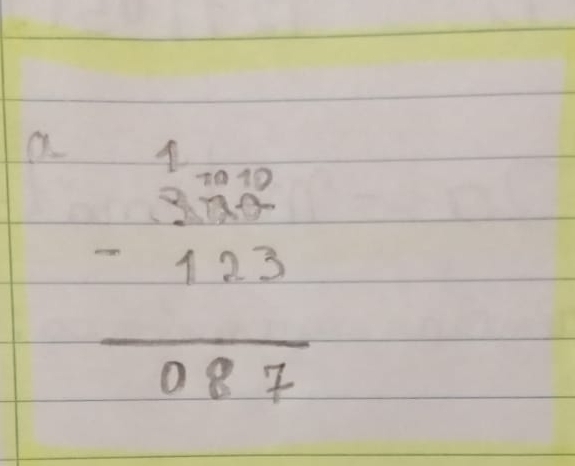 a
1
10 10
- 123
087